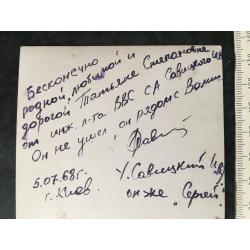 Бесконечно
родной, любимой и
дорогой Татьяне Степановне
от инж. л-та ВВС СА Савицкого
Он не ушел, он рядом с Вами.
5.07.68г. У. Савицкий
г. Киев. он же „Сергей"